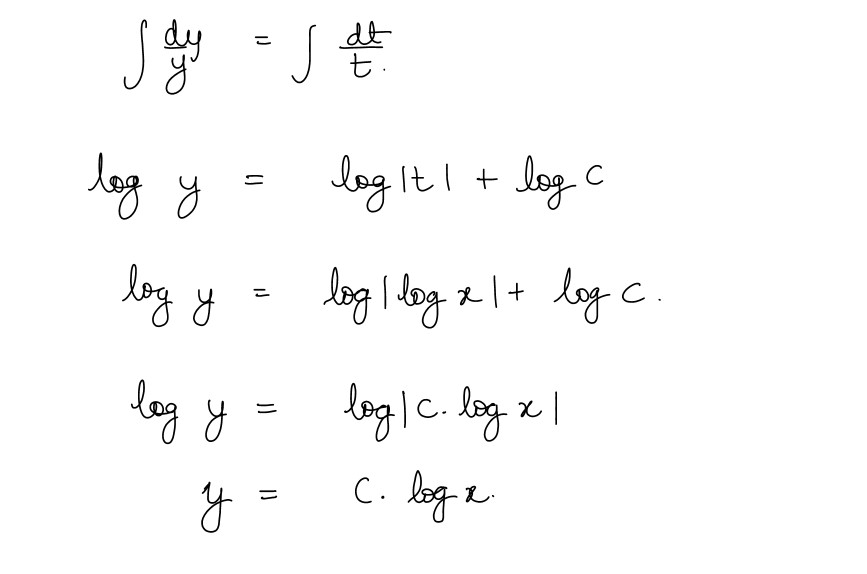 ∫ dy/y = ∫ dt/t.
log y = log|t| + log c
log y = log|log x| + log c.
log y = log|c. log x|
y = c. log x.